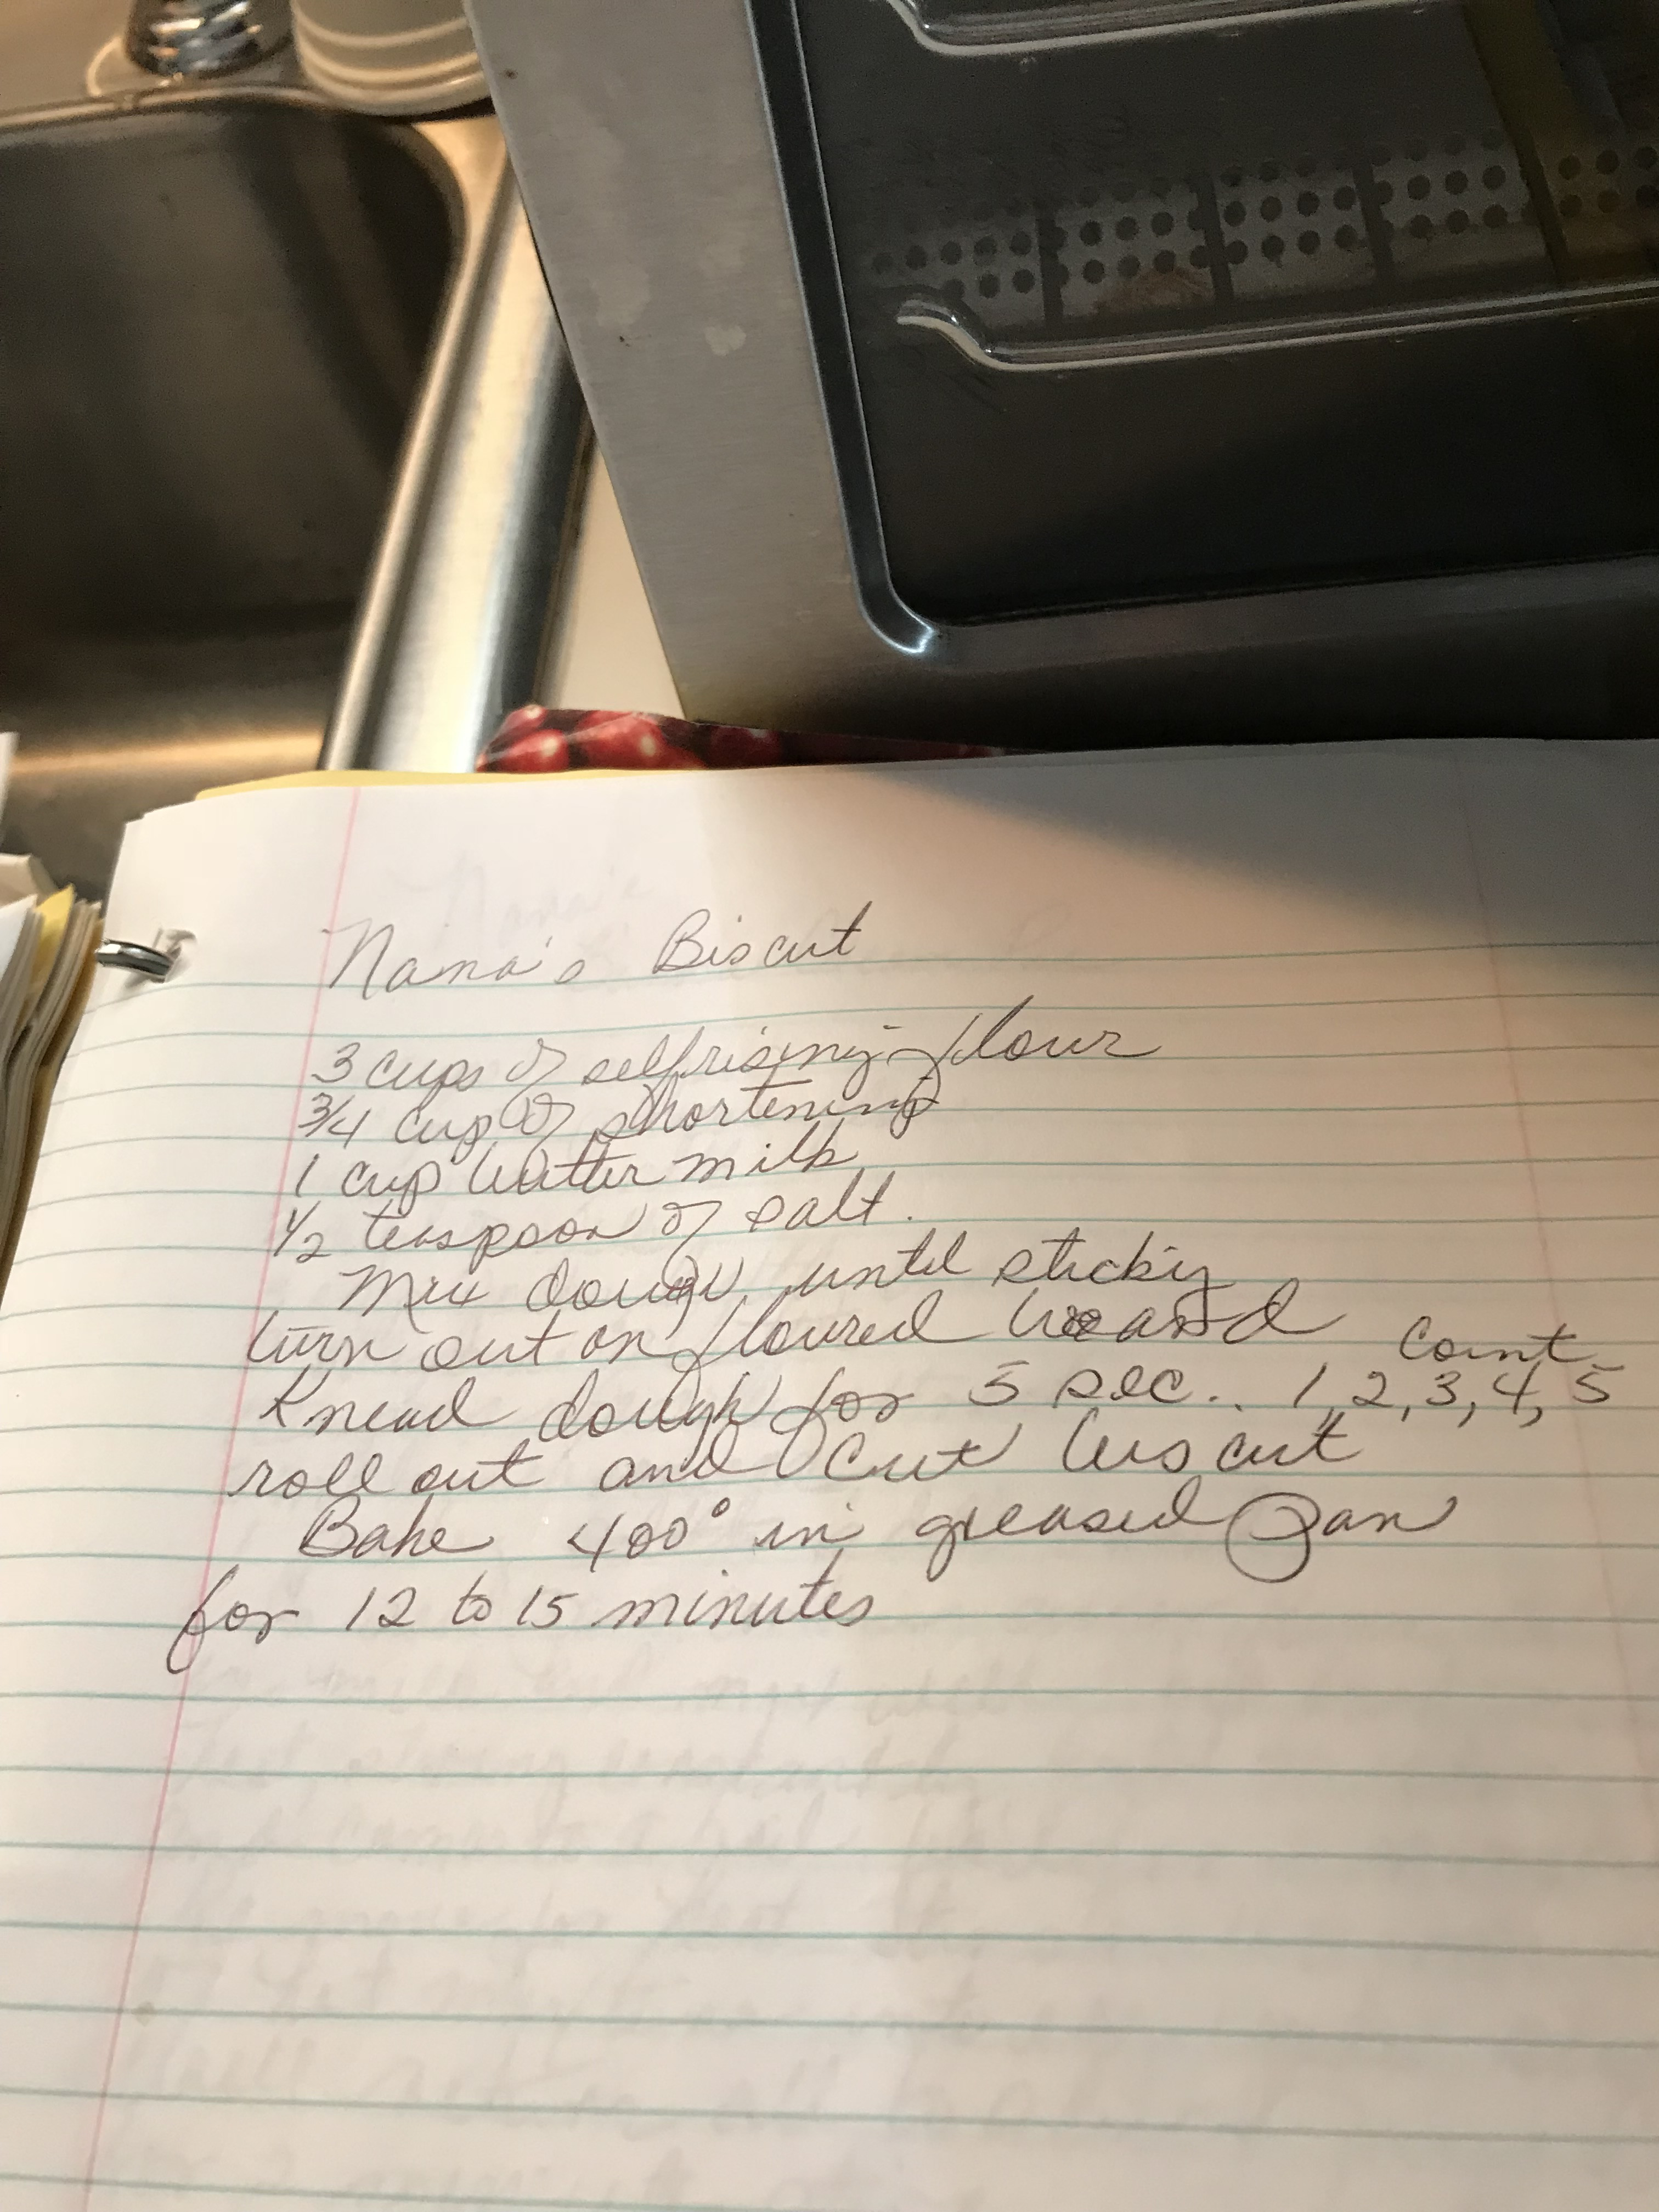 Nana's Biscut
3 cups of selfrising flour
3/4 cup of shortening
1 cup butter milk
1/2 teaspoon of salt.
Mix dough until sticky
turn out on floured board
Knead dough for 5 sec.. Count 1, 2, 3, 4, 5
roll out and Cut biscut
Bake 400° in greased Pan
for 12 to 15 minutes